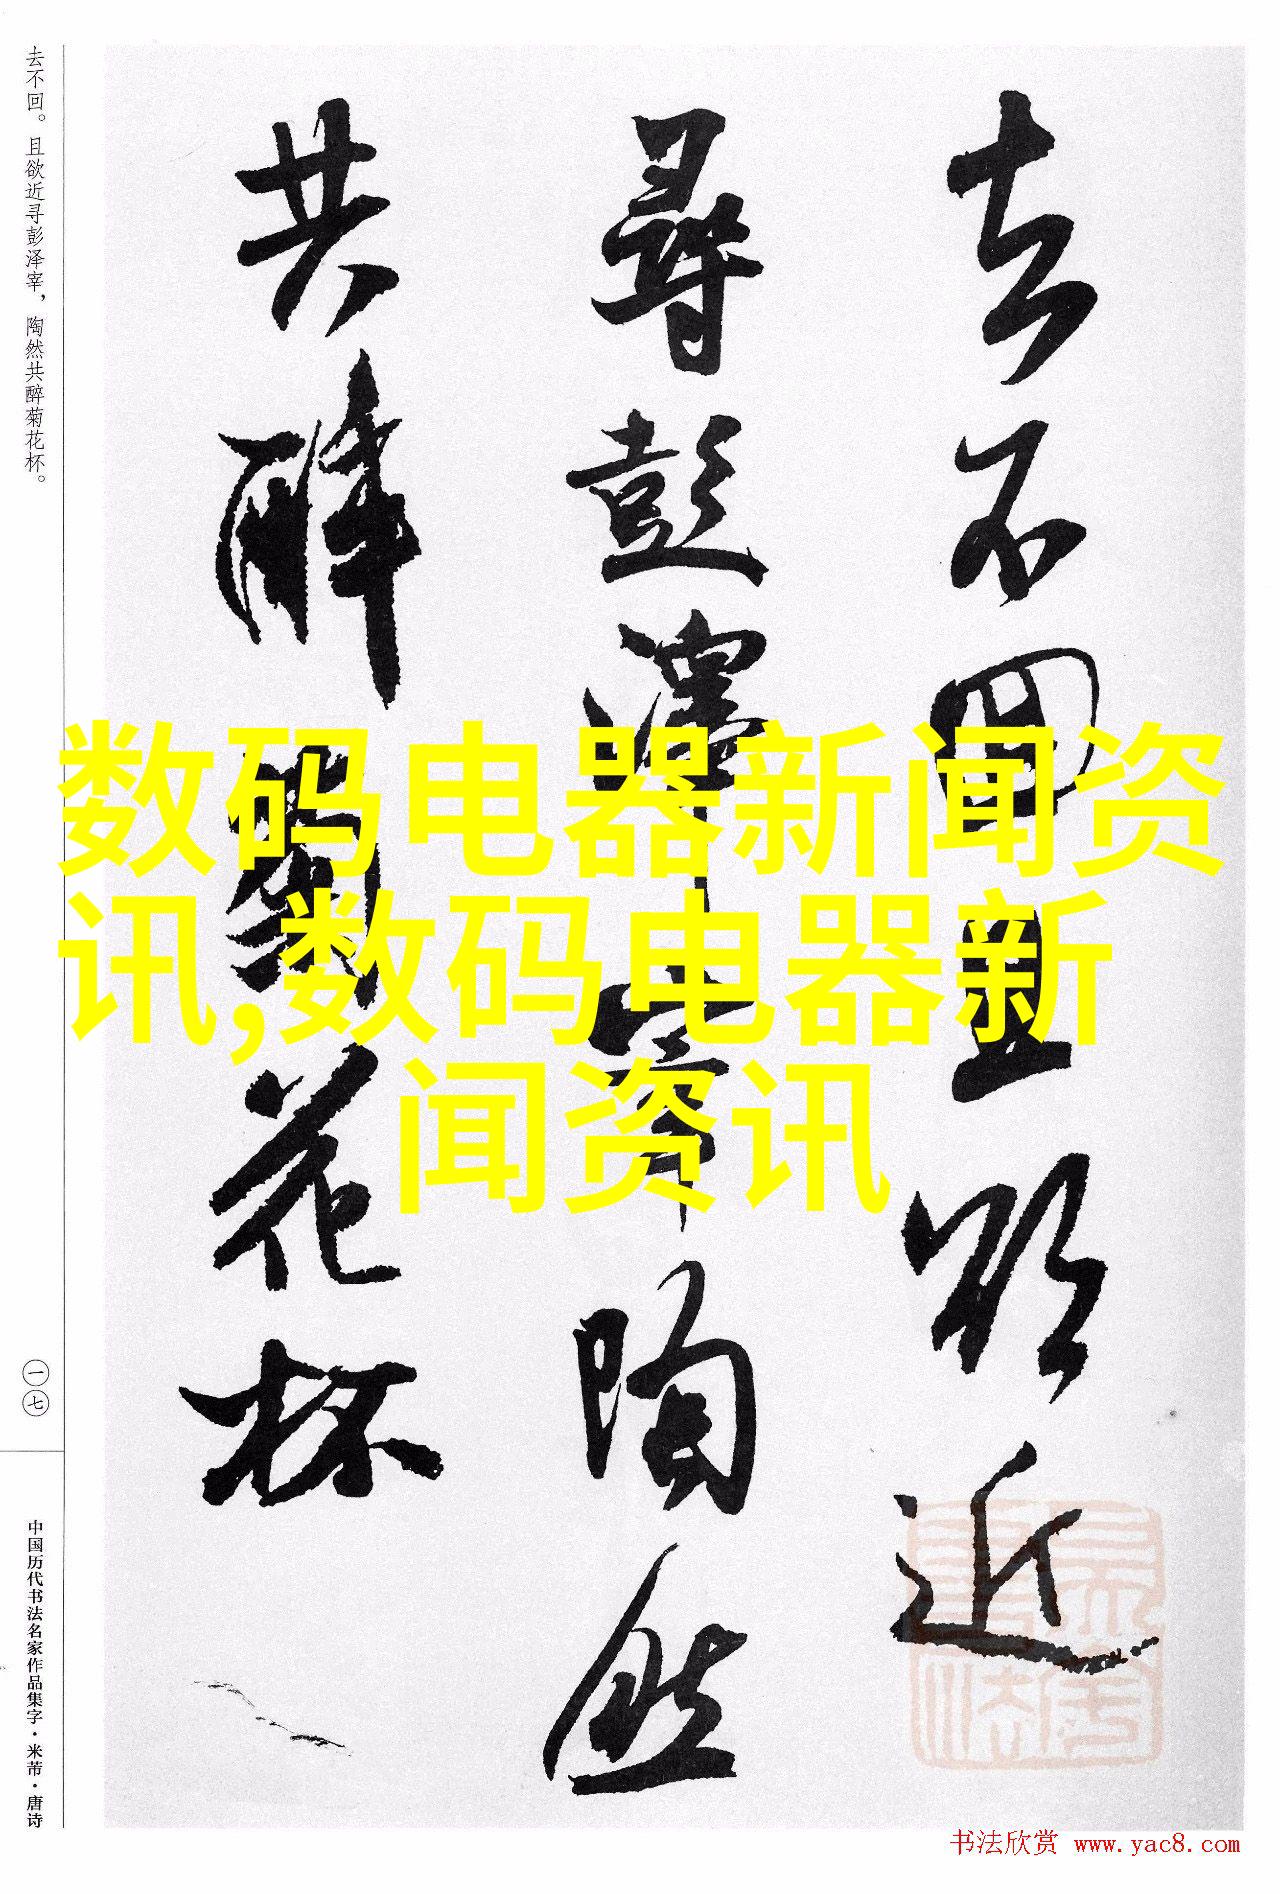 去不回。且欲近寻彭泽宰，陶然共醉菊花杯。
去不回且欲近
尋彭澤宰陶然
共醉菊花杯
数码电器新闻资
讯,数码电器新
闻资讯
一七
中国历代书法名家作品集字·米芾·唐诗
书法欣赏 www.yac8.com